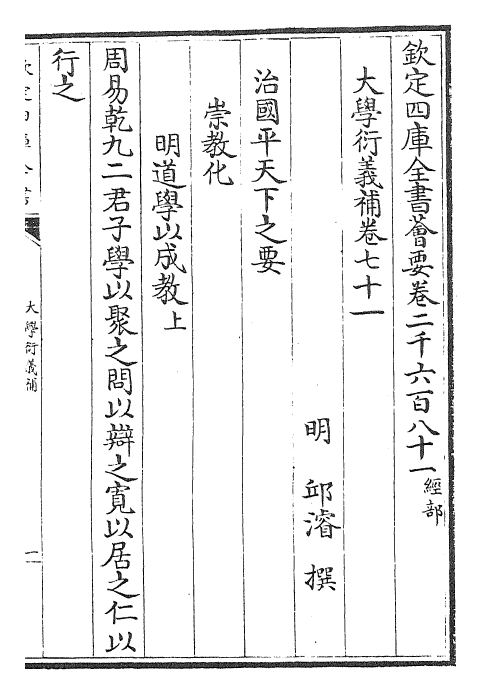 欽定四庫全書薈要卷二千六百八十一經部
大學衍義補卷七十一
明 邱濬 撰
治國平天下之要
崇教化
明道學以成教上
周易乾九二君子學以聚之問以辯之寬以居之仁以
行之
欽定四庫全書
大學衍義補
一